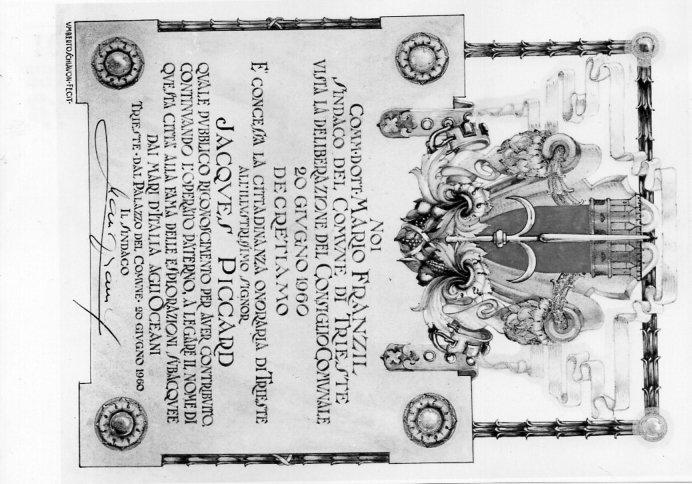 NOI
COMM·DOTT·MARIO FRANZIL
SINDACO DEL COMVNE DI TRIESTE
VISTA LA DELIBERAZIONE DEL CONSIGLIO COMVNALE
20 GIVGNO 1960
DECRETIAMO
E' CONCESSA LA CITTADINANZA ONORARIA DI TRIESTE
ALL'ILLVSTRISSIMO SIGNOR
JACQVES PICCARD
QVALE PVBBLICO RICONOSCIMENTO PER AVER CONTRIBVITO,
CONTINVANDO L'OPERATO PATERNO, A LEGARE IL NOME DI
QVESTA CITTA' ALLA FAMA DELLE ESPLORAZIONI SVBACQVEE
DAI MARI D'ITALIA AGLI OCEANI
TRIESTE·DAL PALAZZO DEL COMVNE·20 GIVGNO 1960
IL SINDACO
VMBERTO SCHIAVON·FECIT·